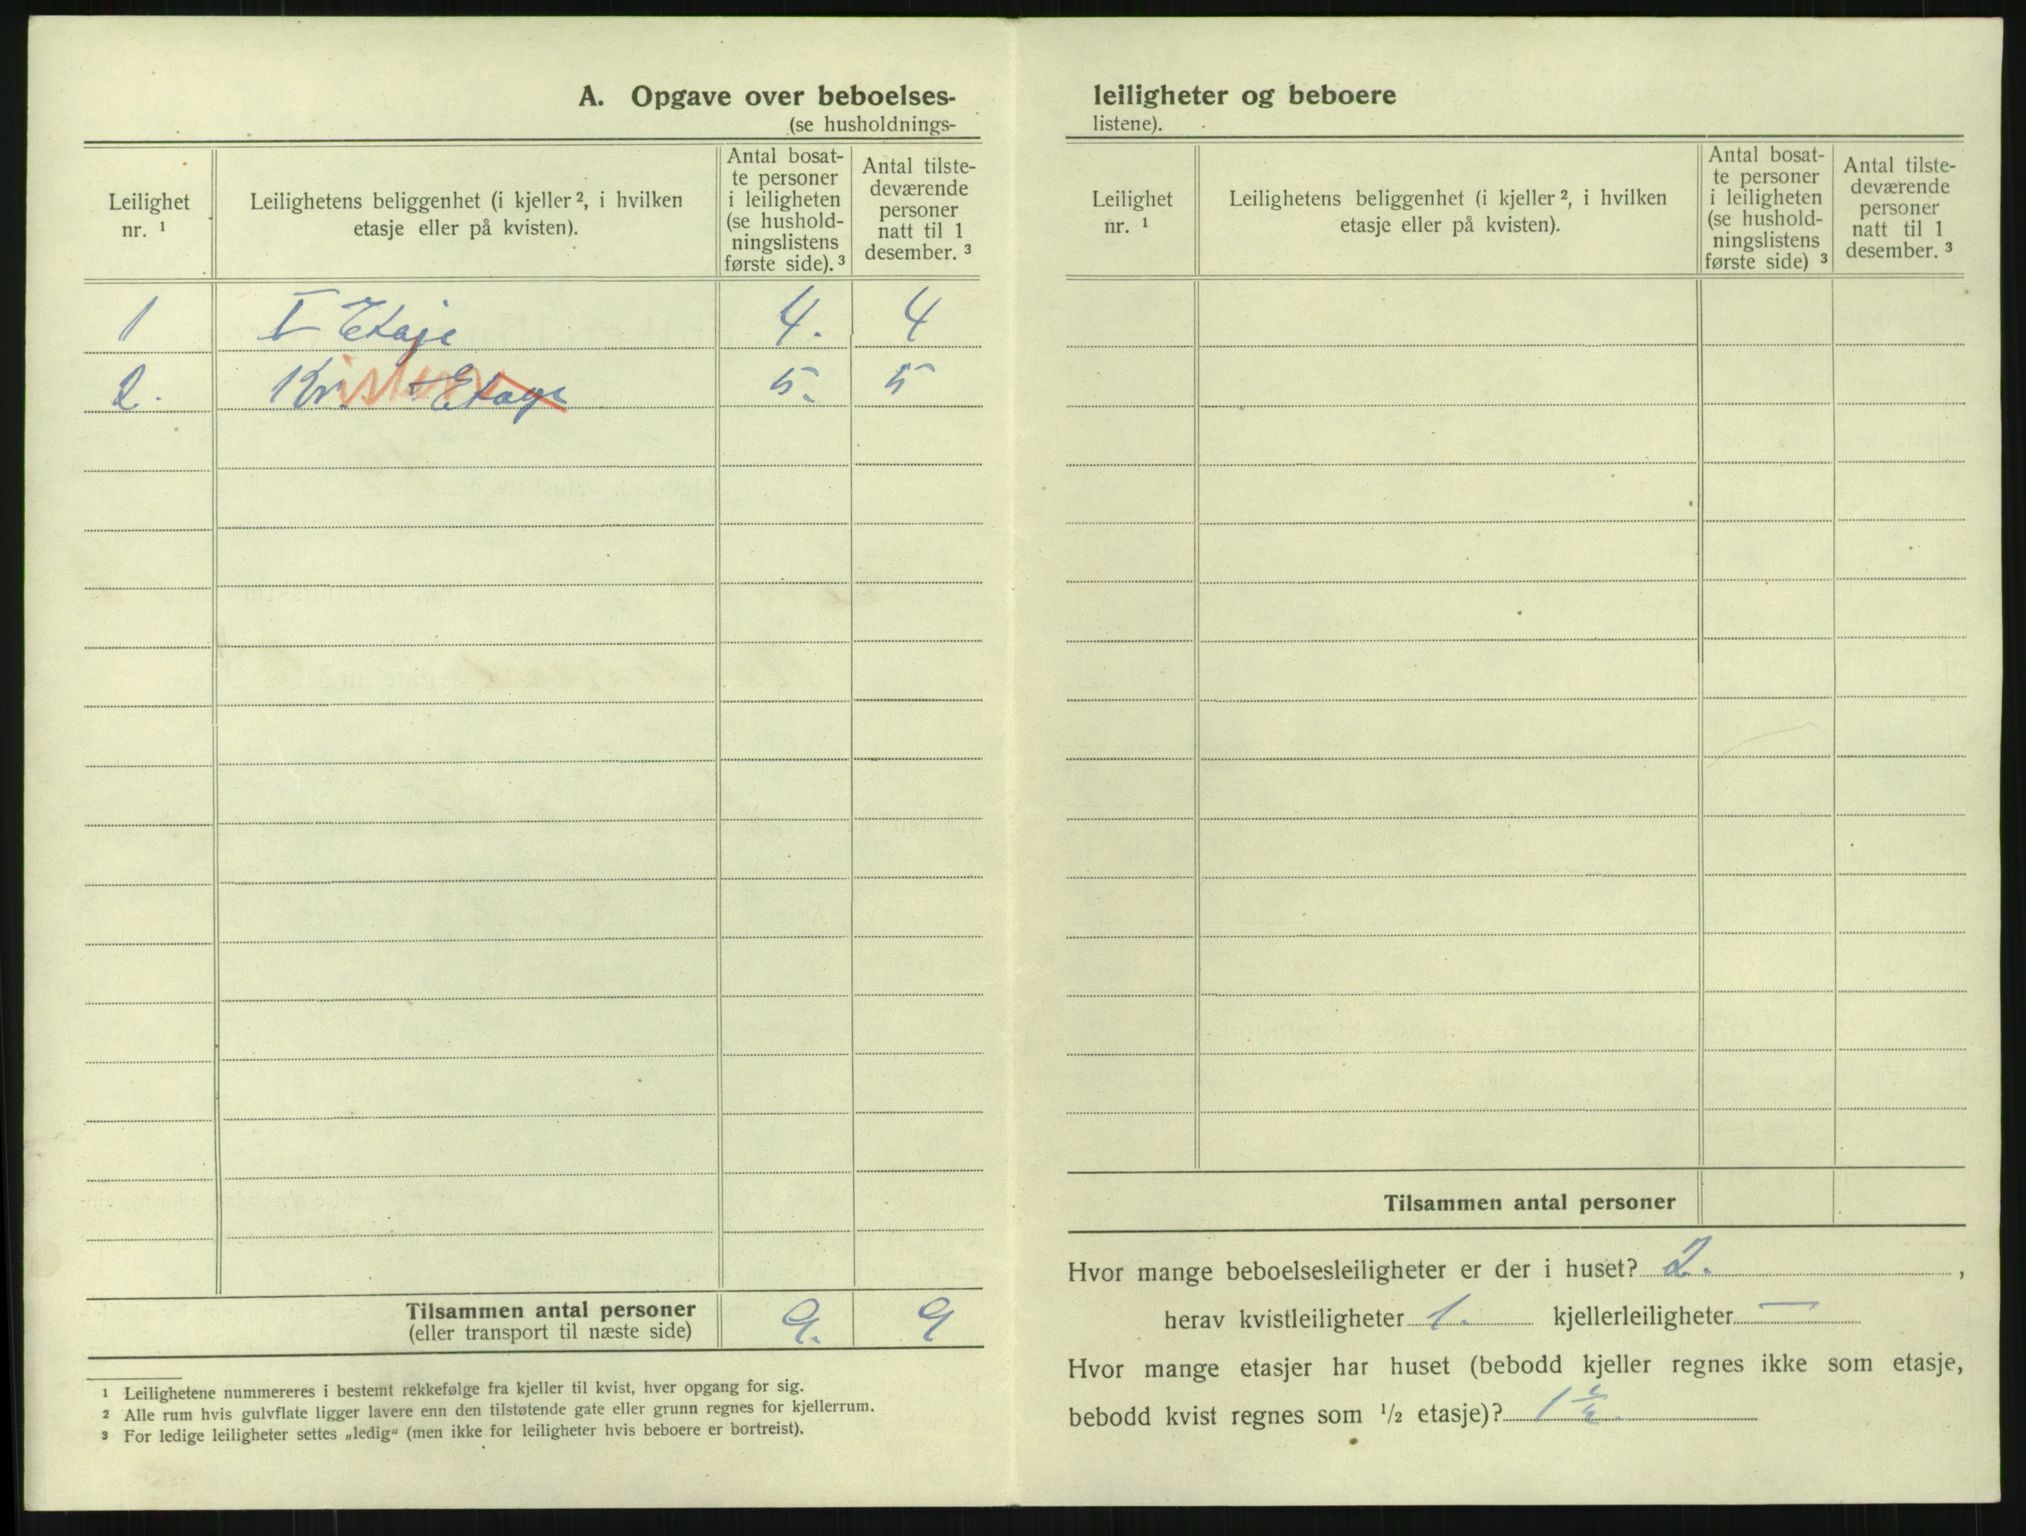 A. Opgave over beboelses-
(se husholdnings-
Leilighet nr. ¹
Leilighetens beliggenhet (i kjeller ², i hvilken etasje eller på kvisten).
Antal bosat-
te personer
i leiligheten
(se hushold-
ningslistens
første side). ³
Antal tilste-
deværende
personer
natt til 1
desember. ³
1 I Etaje 4. 4
2. Kvisten Etage 5. 5
Tilsammen antal personer 9. 9
(eller transport til næste side)
¹ Leilighetene nummereres i bestemt rekkefølge fra kjeller til kvist, hver opgang for sig.
² Alle rum hvis gulvflate ligger lavere enn den tilstøtende gate eller grunn regnes for kjellerrum.
³ For ledige leiligheter settes „ledig“ (men ikke for leiligheter hvis beboere er bortreist).
leiligheter og beboere
listene).
Leilighet nr. ¹
Leilighetens beliggenhet (i kjeller ², i hvilken etasje eller på kvisten).
Antal bosat-
te personer
i leiligheten
(se hushold-
ningslistens
første side) ³
Antal tilste-
deværende
personer
natt til 1
desember. ³
Tilsammen antal personer
Hvor mange beboelsesleiligheter er der i huset? 2. ,
herav kvistleiligheter 1. kjellerleiligheter —
Hvor mange etasjer har huset (bebodd kjeller regnes ikke som etasje,
bebodd kvist regnes som ½ etasje)? 1 ½.